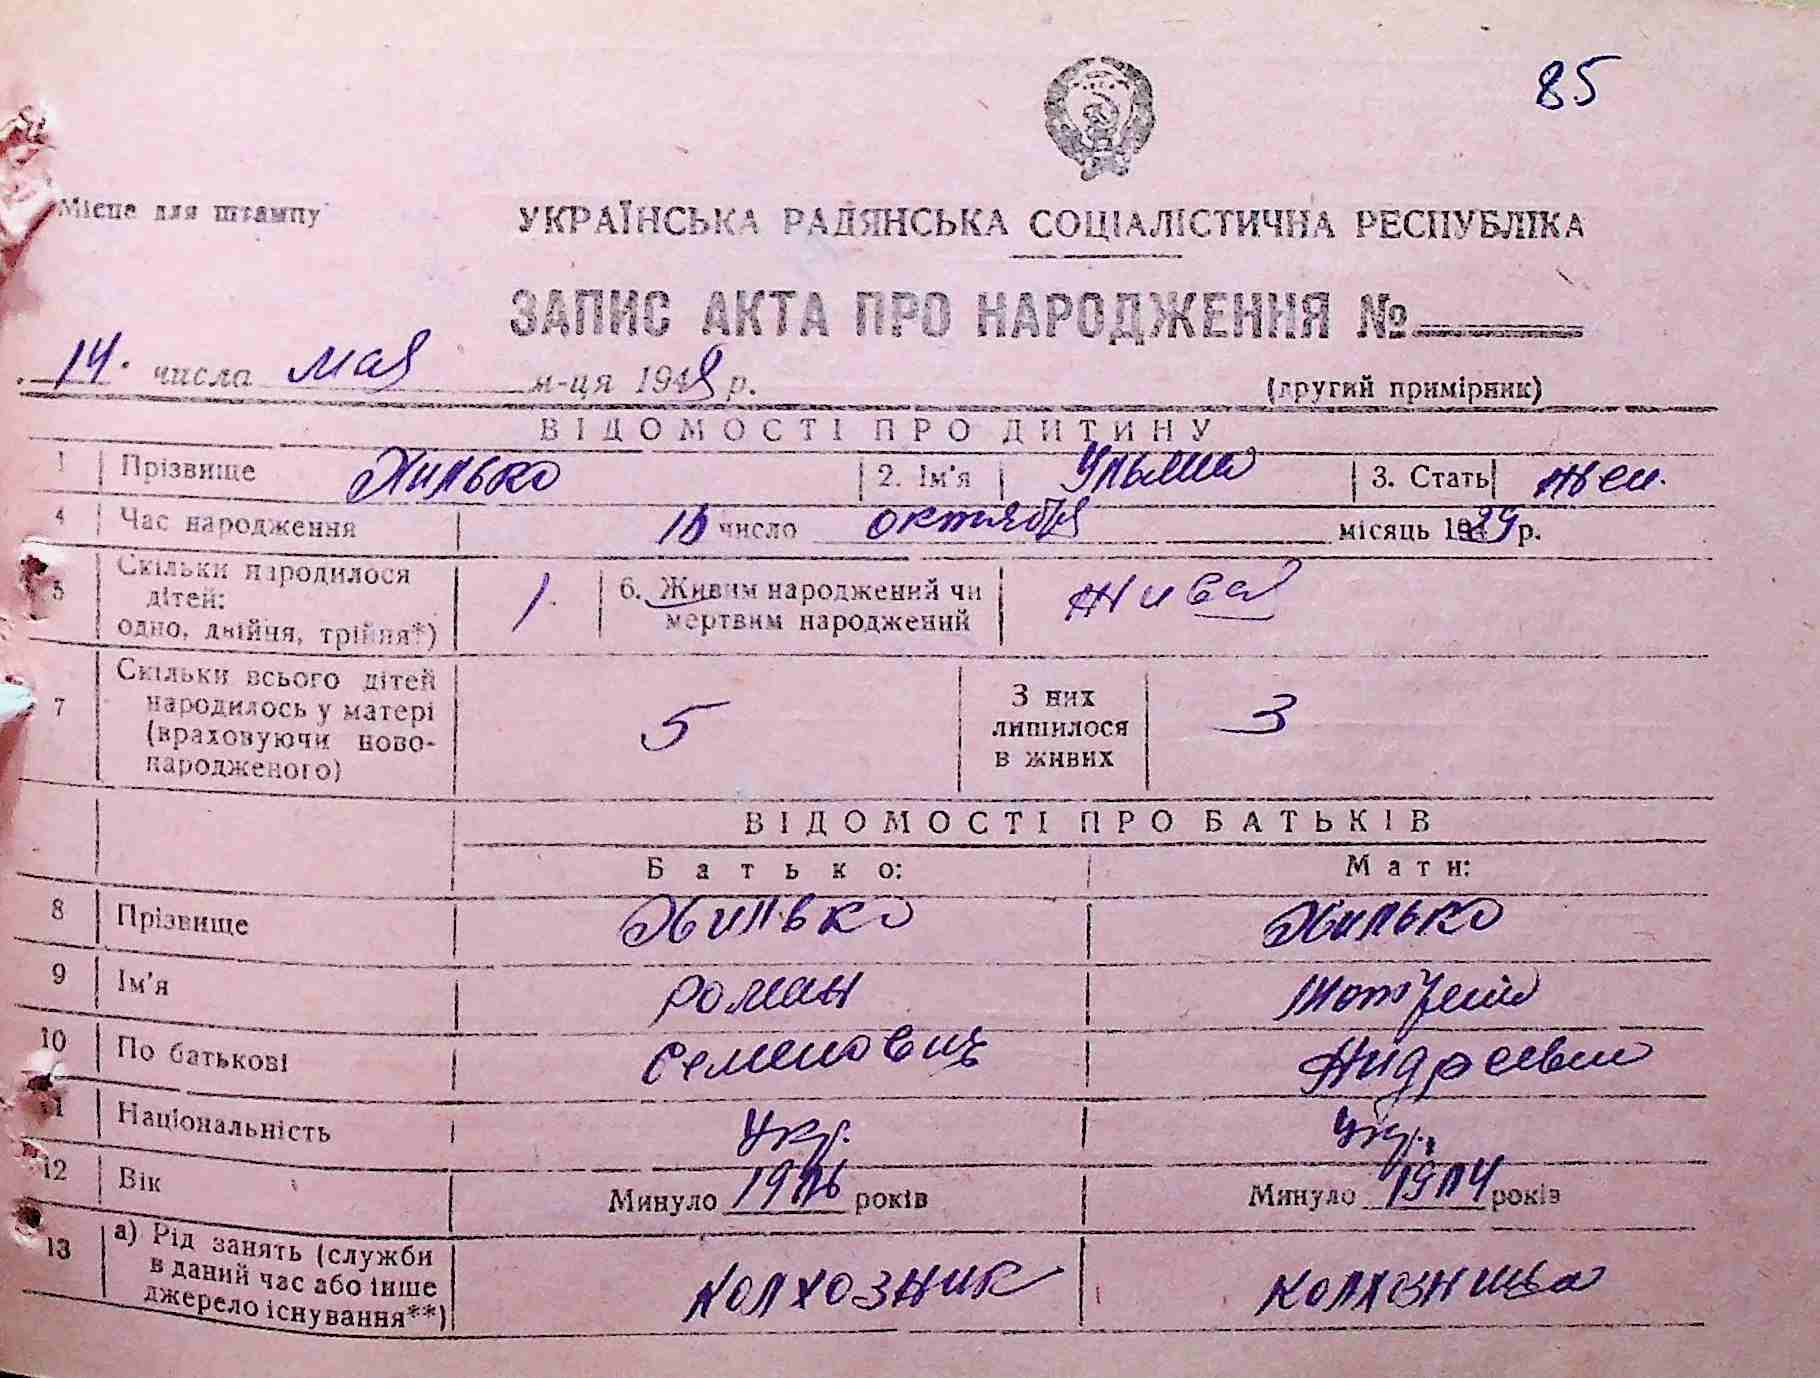 85
Місце для штампу
УКРАЇНСЬКА РАДЯНСЬКА СОЦІАЛІСТИЧНА РЕСПУБЛІКА
ЗАПИС АКТА ПРО НАРОДЖЕННЯ №
14. числа мая м-ця 1948 р.
(другий примірник)
ВІДОМОСТІ ПРО ДИТИНУ
1 Прізвище Хилько 2. Ім'я Ульяна 3. Стать жен.
4 Час народження число октября місяць 1939 р.
5 Скільки народилося дітей: одно, двійня, трійня*) 1. 6. Живим народжений чи мертвим народжений жива
7 Скільки всього дітей народилось у матері (враховуючи ново-народженого) 5 З них лишилося в живих 3
ВІДОМОСТІ ПРО БАТЬКІВ
Батько: Мати:
8 Прізвище Хилько Хилько
9 Ім'я Роман
10 По батькові Семенович Андреевна
11 Національність Укр. Укр.
12 Вік Минуло років Минуло років
13 а) Рід занять (служби в даний час або інше джерело існування**) колхозник колхозница